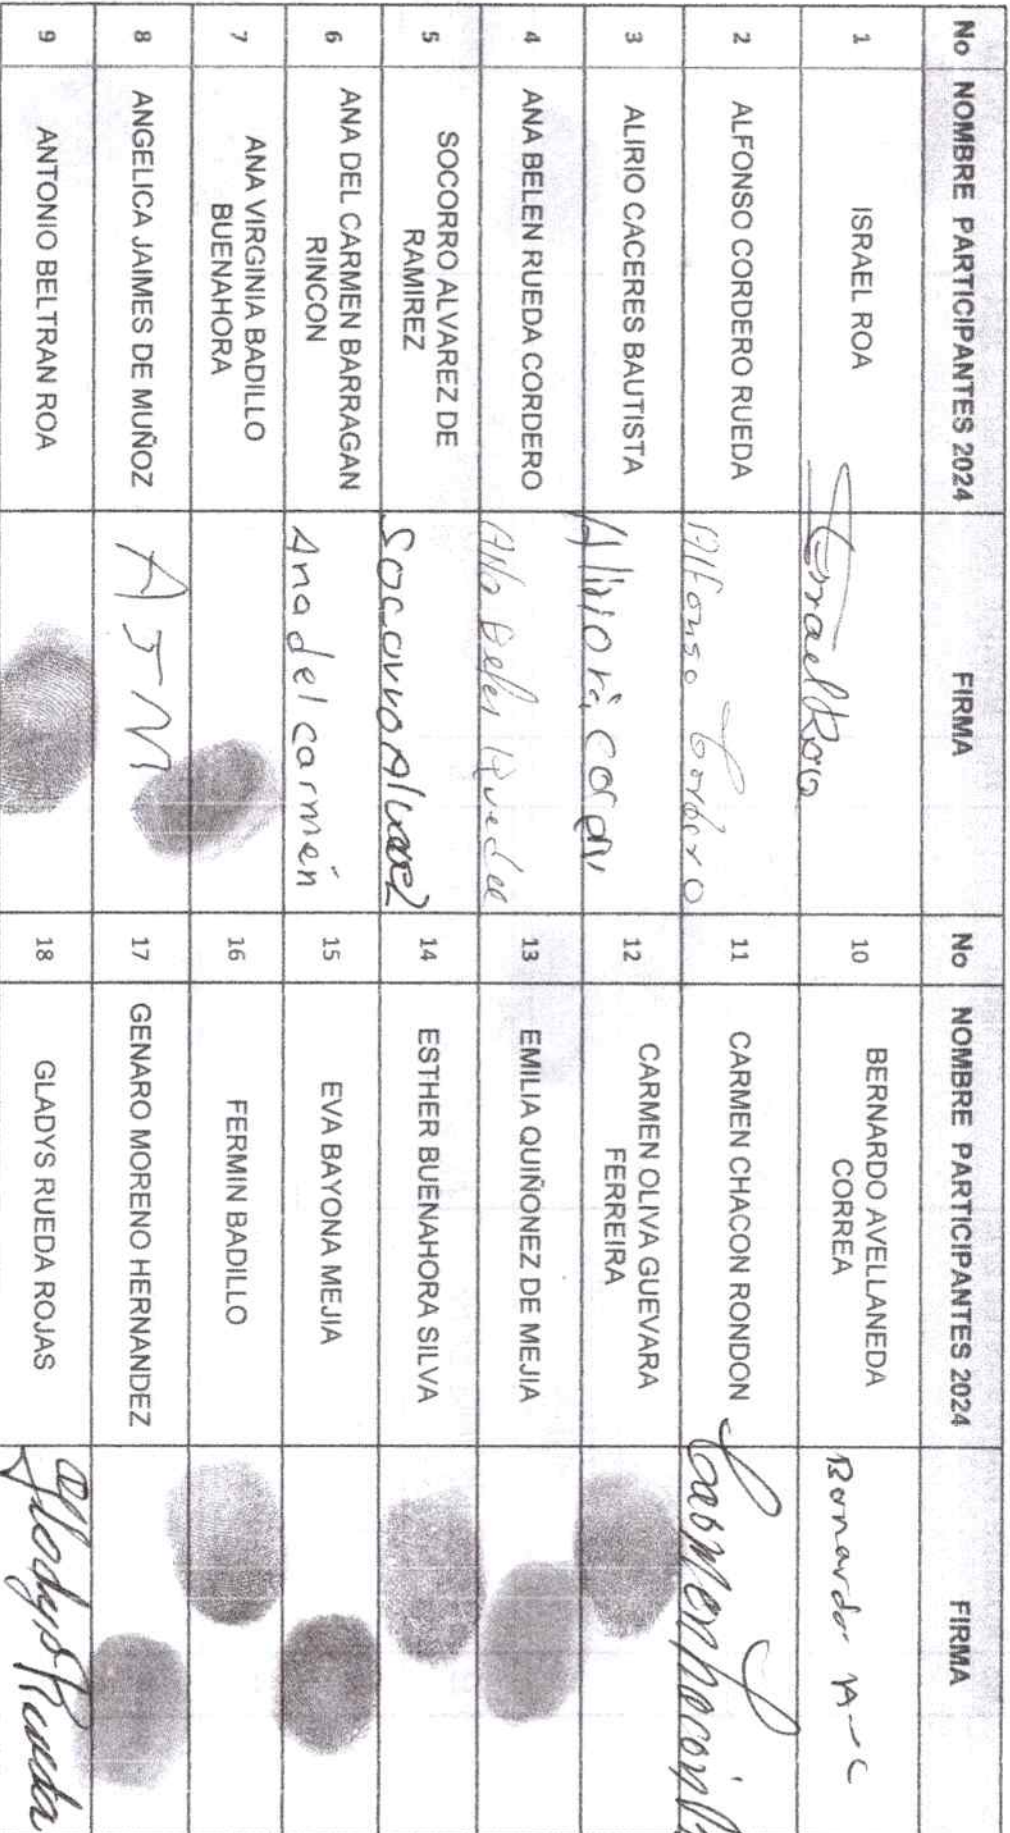 No NOMBRE PARTICIPANTES 2024 FIRMA No NOMBRE PARTICIPANTES 2024 FIRMA
1 ISRAEL ROA Israel Roa 10 BERNARDO AVELLANEDA
CORREA Bernardo A
2 ALFONSO CORDERO RUEDA Alfonso Cordero 11 CARMEN CHACON RONDON Carmen
3 ALIRIO CACERES BAUTISTA Alirio 12 CARMEN OLIVA GUEVARA
FERREIRA
4 ANA BELEN RUEDA CORDERO Ana Belen Rueda 13 EMILIA QUIÑONEZ DE MEJIA
5 SOCORRO ALVAREZ DE
RAMIREZ Socorro Alvarez 14 ESTHER BUENAHORA SILVA
6 ANA DEL CARMEN BARRAGAN
RINCON Ana del carmen 15 EVA BAYONA MEJIA
7 ANA VIRGINIA BADILLO
BUENAHORA 16 FERMIN BADILLO
8 ANGELICA JAIMES DE MUÑOZ A J M 17 GENARO MORENO HERNANDEZ
9 ANTONIO BELTRAN ROA 18 GLADYS RUEDA ROJAS Gladys Rueda